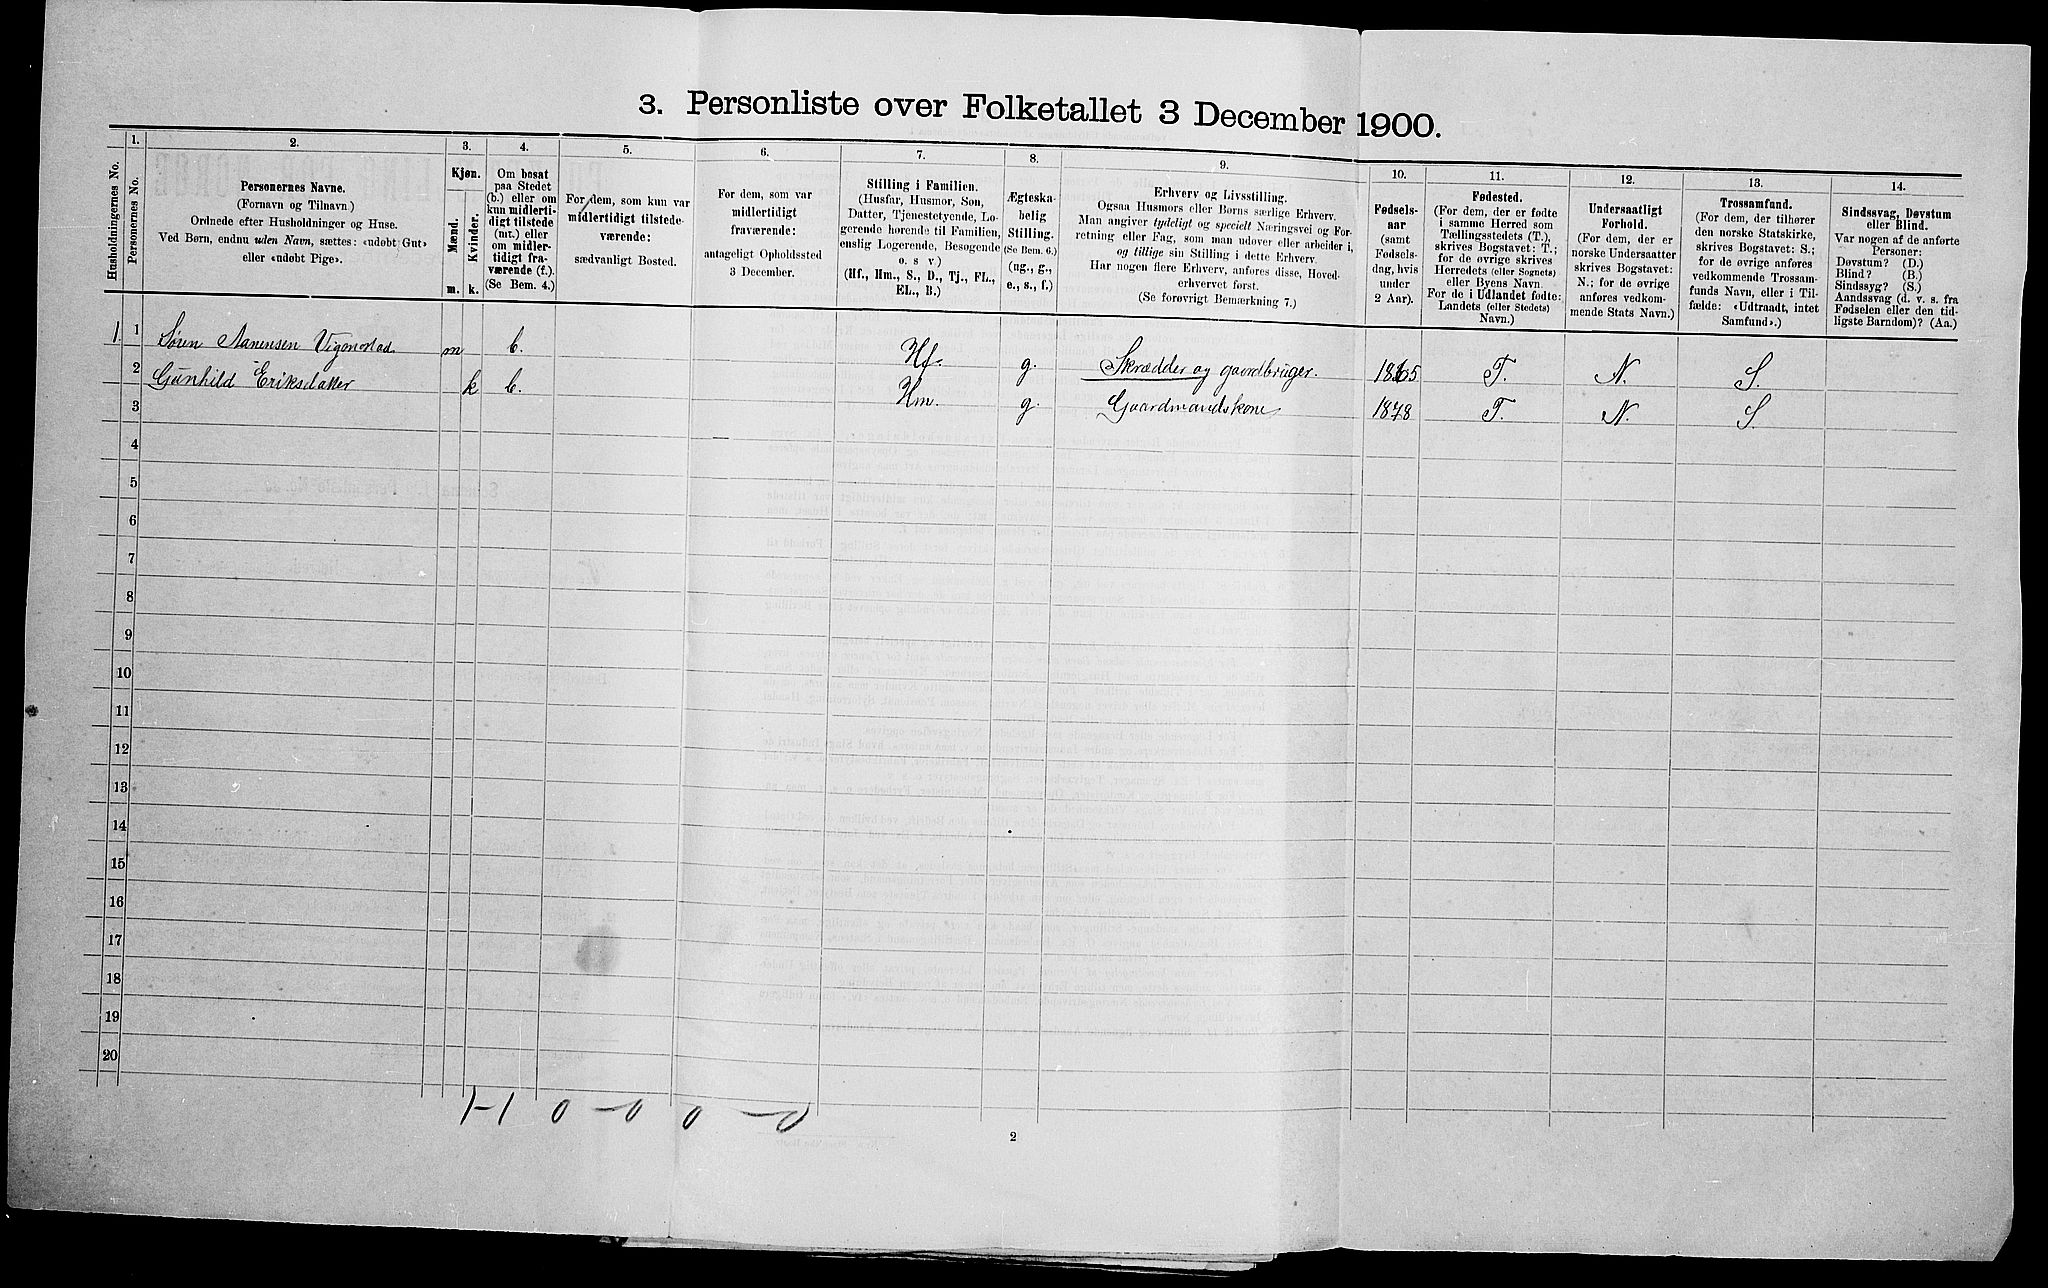 3. Personliste over Folketallet 3 December 1900.
Husholdningernes No.
1.
Personernes No.
2.
Personernes Navne.
(Fornavn og Tilnavn.)
Ordnede efter Husholdninger og Huse.
Ved Børn, endnu uden Navn, sættes: «udøbt Gut»
eller «udøbt Pige».
3.
Kjøn.
Mænd.
Kvinder.
m. k.
4.
Om bosat
paa Stedet
(b.) eller om
kun midlerti-
digt tilstede
(mt.) eller
om midler-
tidigt fra-
værende (f.).
(Se Bem. 4.)
5.
For dem, som kun var
midlertidigt tilstede-
værende:
sædvanligt Bosted.
6.
For dem, som var
midlertidigt
fraværende:
antageligt Opholdssted
3 December.
7.
Stilling i Familien.
(Husfar, Husmor, Søn,
Datter, Tjenestetyende, Lo-
gerende hørende til Familien,
enslig Logerende, Besøgende
o. s. v.)
(Hf., Hm., S., D., Tj., FL.,
EL., B.)
8.
Ægteska-
belig
Stilling.
(Se Bem. 6.)
(ug., g.,
e., s., f.)
9.
Erhverv og Livsstilling.
Ogsaa Husmors eller Børns særlige Erhverv.
Man angiver tydeligt og specielt Næringsvei og For-
retning eller Fag, som man udover eller arbeider i,
og tillige sin Stilling i dette Erhverv.
Har nogen flere Erhverv, anføres disse, Hoved-
erhvervet først.
(Se forøvrigt Bemærkning 7.)
10.
Fødsels-
aar
(samt
Fødsels-
dag, hvis
under
2 Aar).
11.
Fødested.
(For dem, der er fødte
i samme Herred som
Tællingsstedets (T.),
skrives Bogstavet: T.;
for de øvrige skrives
Herredets (eller Sognets)
eller Byens Navn.
For de i Udlandet fødte:
Landets (eller Stedets)
Navn.)
12.
Undersaatligt
Forhold.
(For dem, der er
norske Undersaatter
skrives Bogstavet:
N.; for de øvrige
anføres vedkom-
mende Stats Navn.)
13.
Trossamfund.
(For dem, der tilhører
den norske Statskirke,
skrives Bogstavet: S.;
for de øvrige anføres
vedkommende Trossam-
funds Navn, eller i Til-
fælde: «Udtraadt, intet
Samfund».)
14.
Sindssvag, Døvstum
eller Blind.
Var nogen af de anførte
Personer:
Døvstum? (D.)
Blind? (B.)
Sindssyg? (S.)
Aandssvag (d. v. s. fra
Fødselen eller den tid-
ligste Barndom)? (Aa.)
1. 1 Søren Aanensen Vigonstad m b. Hf. g. Skrædder og gaardbruger. 1865 T. N. S.
2 Gunhild Eriksdatter k b. Hm. g. Gaardmandskone 1878 T. N. S.
3
4
5
6
7
8
9
10
11
12
13
14
15
16
17
18
19
20
2